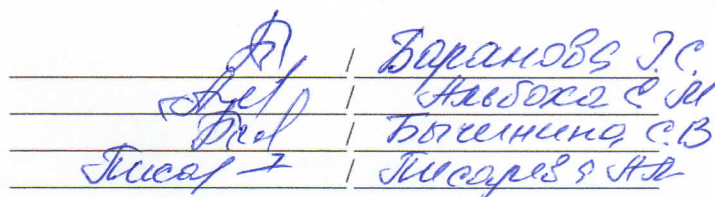 / Баранова Г.С.
/ Альбоха Е М
/ Бычинина С.В
Писар / Писарева АП